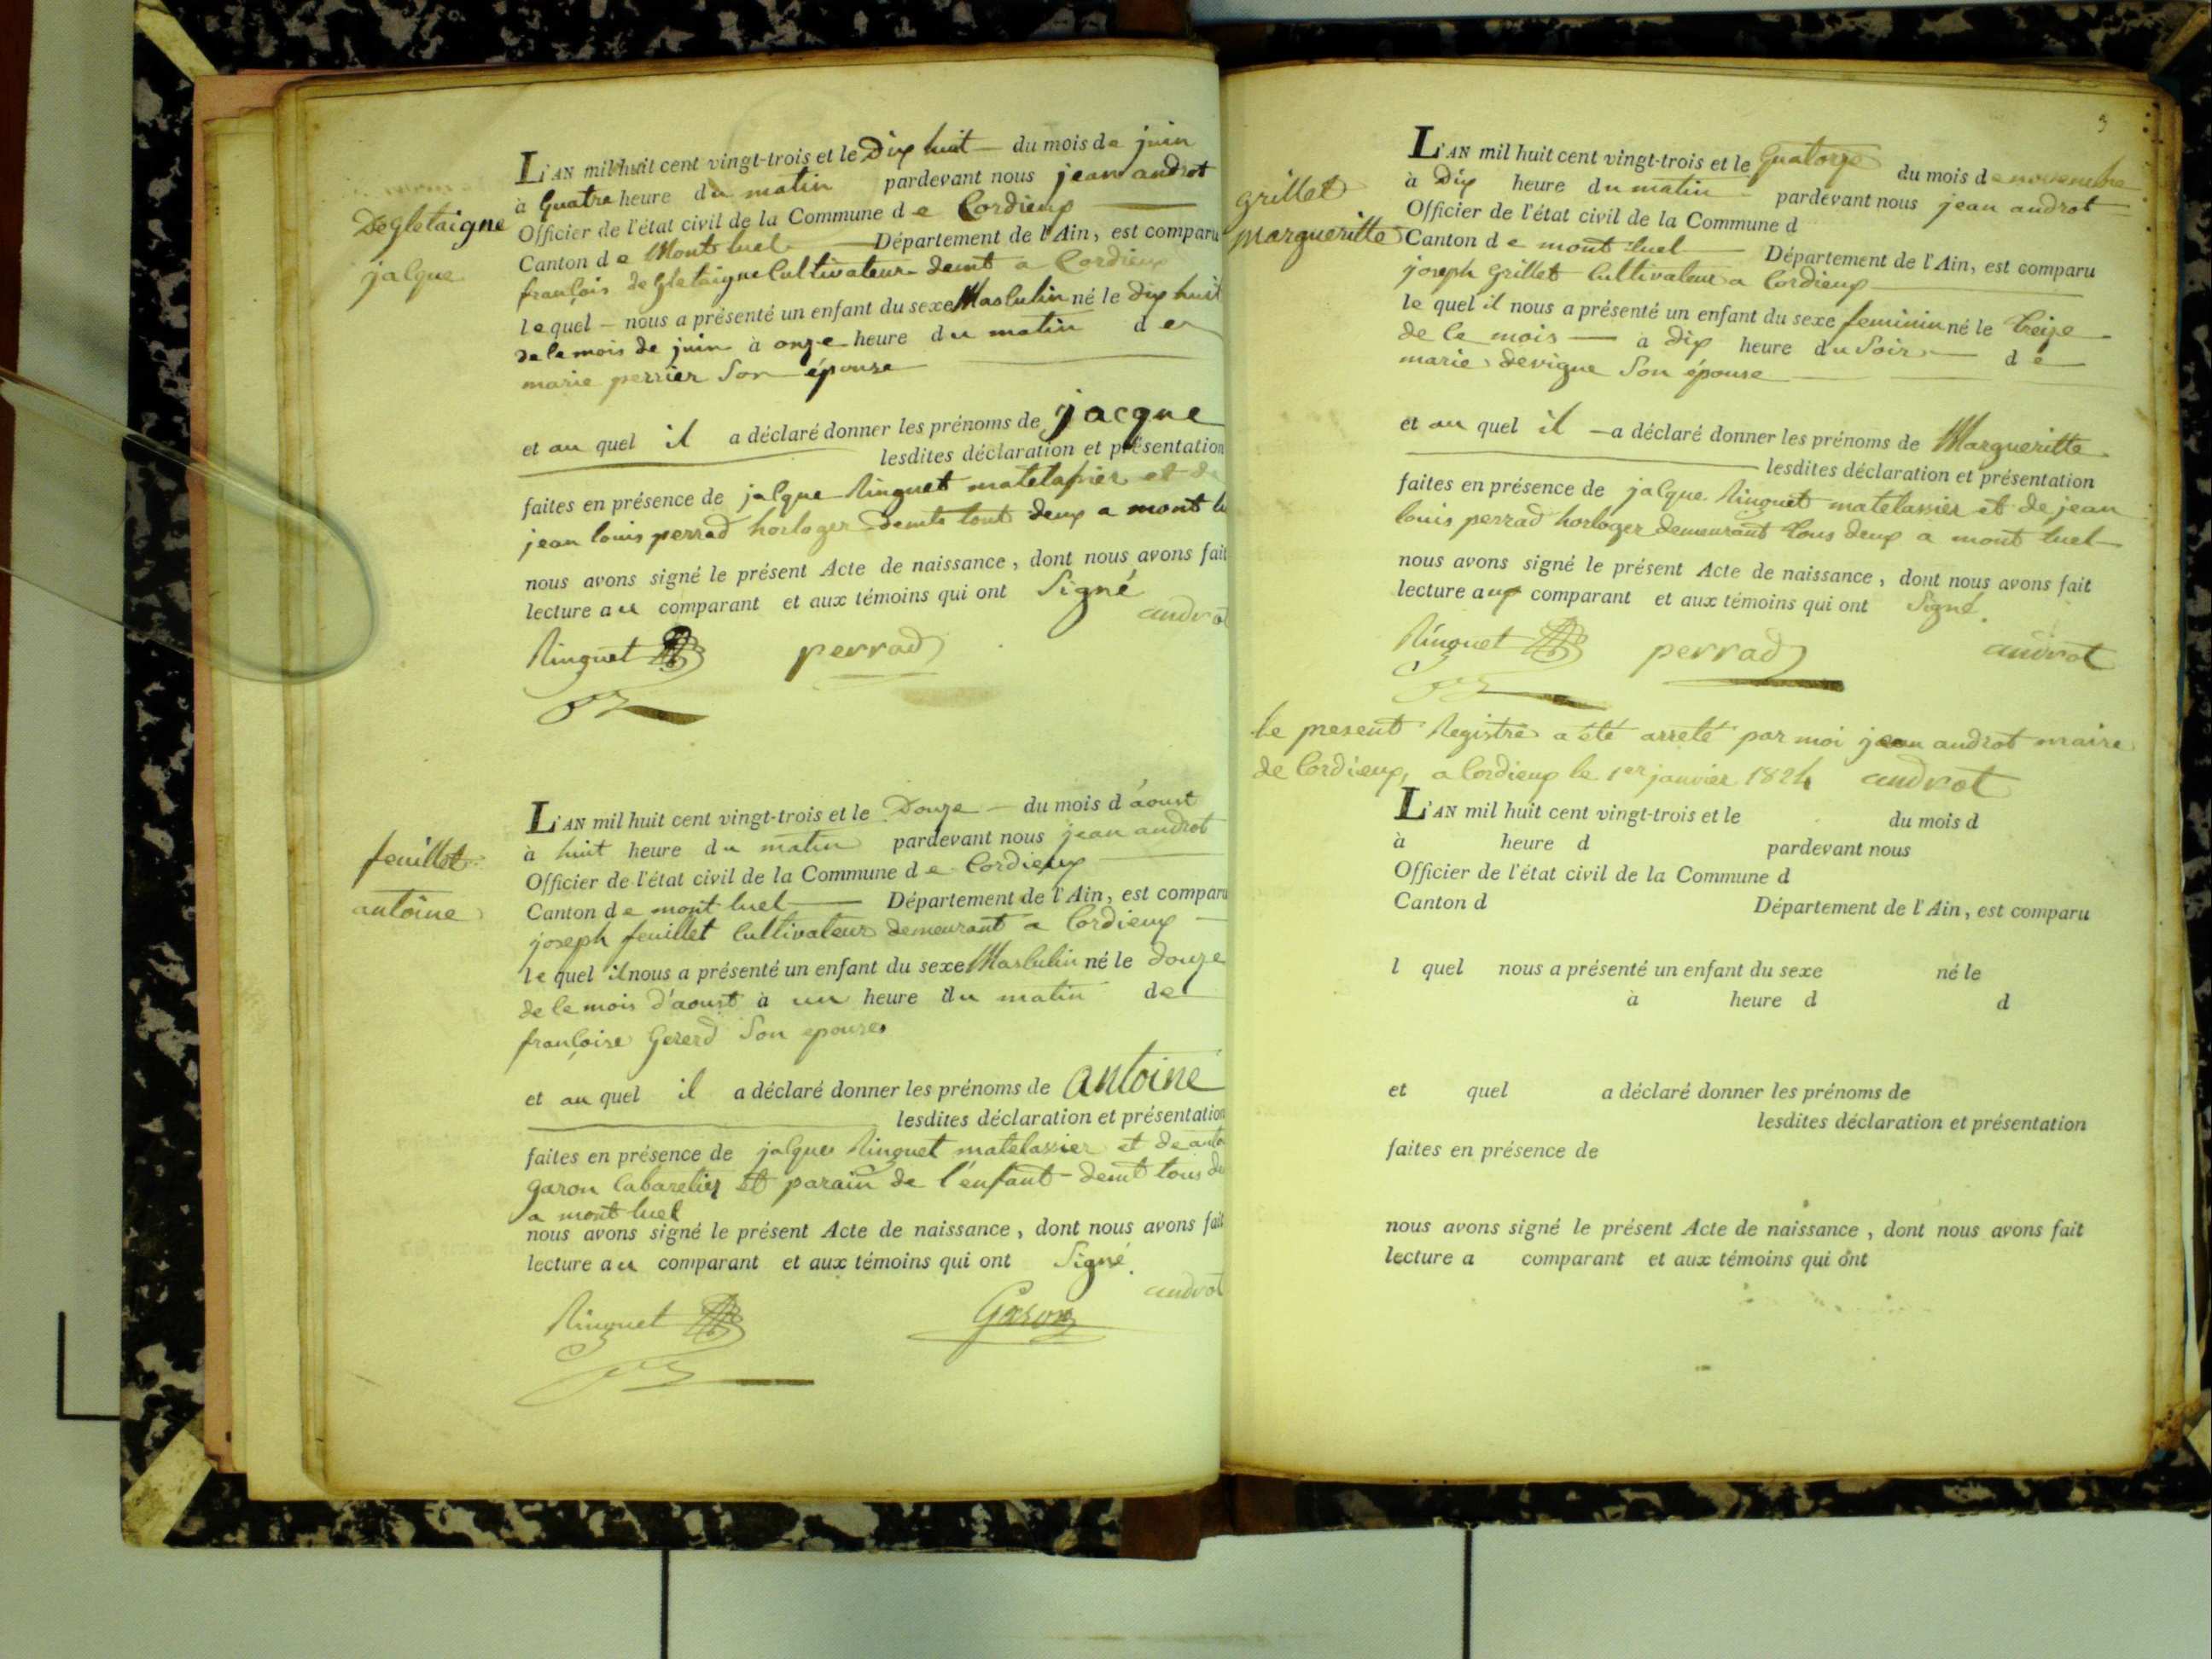 Degletaigne
jalque
L'AN mil huit cent vingt-trois et le Dix huit du mois de juin
à quatre heure du matin pardevant nous jean androt
Officier de l'état civil de la Commune de Cordieux
Canton de Mont luel Département de l'Ain, est comparu
françois degletaigne Cultivateur demt a Cordieux
lequel nous a présenté un enfant du sexe Masculin né le dix huit
de ce mois de juin à onze heure du matin de
marie perrier Son épouse
et au quel il a déclaré donner les prénoms de jacque
lesdites déclaration et présentation
faites en présence de jalque Ringuet matelassier et de
jean louis perrad horloger demts tout deux a mont
nous avons signé le présent Acte de naissance, dont nous avons fait
lecture au comparant et aux témoins qui ont Signé
androt
Ringuet perrad
feuillet
antoine
L'AN mil huit cent vingt-trois et le Douze du mois d'aoust
à huit heure du matin pardevant nous jean androt
Officier de l'état civil de la Commune de Cordieux
Canton de mont luel Département de l'Ain, est comparu
joseph feuillet Cultivateur demeurant a Cordieux
lequel il nous a présenté un enfant du sexe Masculin né le douze
de ce mois d'aoust à un heure du matin de
françoise Gererd Son epouse
et au quel il a déclaré donner les prénoms de antoine
lesdites déclaration et présentation
faites en présence de jalque Ringuet matelassier et de
garon Cabaretier et parain de l'enfant demt tous
a mont luel
nous avons signé le présent Acte de naissance, dont nous avons fait
lecture au comparant et aux témoins qui ont Signé.
androt
Ringuet Garon
3
grillet
margueritte
L'AN mil huit cent vingt-trois et le Quatorze du mois de novembre
à Dix heure du matin pardevant nous jean androt
Officier de l'état civil de la Commune d
Canton de mont luel Département de l'Ain, est comparu
joseph grillet Cultivateur a Cordieux
le quel il nous a présenté un enfant du sexe feminin né le treize
de ce mois à dix heure du Soir de
marie devigne Son épouse
et au quel il a déclaré donner les prénoms de Margueritte
lesdites déclaration et présentation
faites en présence de jalque Ringuet matelassier et de jean
louis perrad horloger demeurant tous deux a mont luel
nous avons signé le présent Acte de naissance, dont nous avons fait
lecture aux comparant et aux témoins qui ont Signé.
Ringuet perrad androt
le present Registre a été arreté par moi jean androt maire
de Cordieux, a Cordieux le 1er janvier 1824 androt
L'AN mil huit cent vingt-trois et le du mois d
à heure d pardevant nous
Officier de l'état civil de la Commune d
Canton d Département de l'Ain, est comparu
l quel nous a présenté un enfant du sexe né le
à heure d d
et quel a déclaré donner les prénoms de
lesdites déclaration et présentation
faites en présence de
nous avons signé le présent Acte de naissance, dont nous avons fait
lecture a comparant et aux témoins qui ont